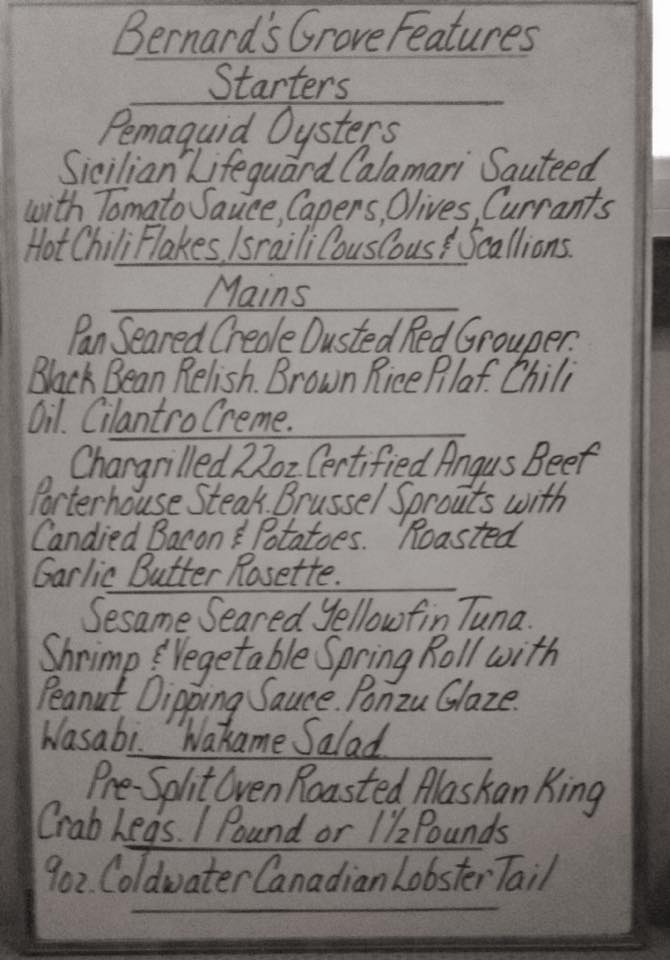 Bernard's Grove Features
Starters
Pemaquid Oysters
Sicilian Lifeguard Calamari Sauteed
with Tomato Sauce, Capers, Olives, Currants
Hot Chili Flakes, Israili CousCous & Scallions.
Mains
Pan Seared Creole Dusted Red Grouper.
Black Bean Relish. Brown Rice Pilaf. Chili
Oil. Cilantro Creme.
Chargrilled 22oz. Certified Angus Beef
Porterhouse Steak. Brussel Sprouts with
Candied Bacon & Potatoes. Roasted
Garlic Butter Rosette.
Sesame Seared Yellowfin Tuna.
Shrimp & Vegetable Spring Roll with
Peanut Dipping Sauce. Ponzu Glaze.
Wasabi. Wakame Salad
Pre-Split Oven Roasted Alaskan King
Crab Legs. 1 Pound or 1½ Pounds
9oz. Coldwater Canadian Lobster Tail